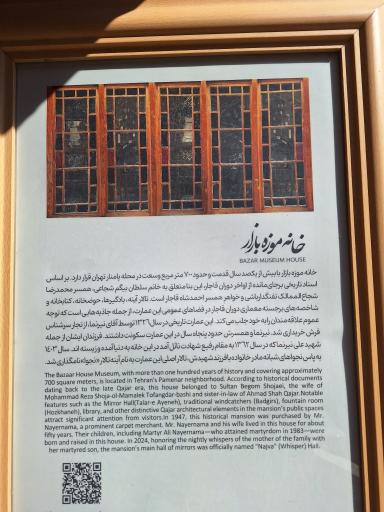 خانه موزه بازار
BAZAR MUSEUM HOUSE
خانه موزه بازار با بیش از یکصد سال قدمت و حدود ۷۰۰ متر مربع وسعت در محله پامنار تهران قرار دارد. بر اساس
اسناد تاریخی برجای‌مانده از اواخر دوران قاجار، این بنا متعلق به خانم سلطان بیگم شجاعی، همسر محمدرضا
شجاع الممالک تفنگدارباشی و خواهر همسر احمدشاه قاجار است. تالار آینه، بادگیرها، حوضخانه، کتابخانه و
شاخصه‌های برجسته معماری دوران قاجار در فضاهای عمومی این عمارت، از جمله جاذبه‌هایی است که توجه
عموم علاقه‌مندان را به خود جلب می‌کند. این عمارت تاریخی در سال ۱۳۲۶ توسط آقای نیرنما، از تجار سرشناس
فرش خریداری شد. نیرنما و همسرش حدود پنجاه سال در این عمارت سکونت داشتند. فرزندان ایشان از جمله
شهید علی نیرنما که در سال ۱۳۶۲ به مقام رفیع شهادت نائل آمد در این خانه به دنیا آمده و زیسته اند. سال ۱۴۰۳
به پاس نجواهای شبانه مادر خانواده با فرزند شهیدش، تالار اصلی این عمارت به نام آینه تالار «نجوا» نامگذاری شد.
The Bazar House Museum, with more than one hundred years of history and covering approximately
700 square meters, is located in Tehran's Pamenar neighborhood. According to historical documents
dating back to the late Qajar era, this house belonged to Sultan Begom Shojaei, the wife of
Mohammad Reza Shoja-ol-Mamalek Tofangdar-bashi and sister-in-law of Ahmad Shah Qajar. Notable
features such as the Mirror Hall(Talar-e Ayeneh), traditional windcatchers (Badgirs), fountain room
(Hozkhaneh), library, and other distinctive Qajar architectural elements in the mansion's public spaces
attract significant attention from visitors.In 1947, this historical mansion was purchased by Mr.
Nayernama, a prominent carpet merchant. Mr. Nayernama and his wife lived in this house for about
fifty years. Their children, including Martyr Ali Nayernama—who attained martyrdom in 1983—were
born and raised in this house. In 2024, honoring the nightly whispers of the mother of the family with
her martyred son, the mansion's main hall of mirrors was officially named "Najva" (Whisper) Hall.